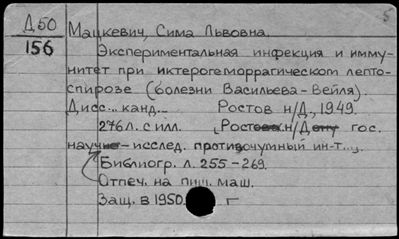 5
Д50
156
Мацкевич, Сима Львовна.
Экспериментальная инфекция и имму-
нитет при иктерогеморрагическом лепто-
спирозе (болезни Васильева-Вейля).
Дисс... канд... Ростов н/Д., 1949.
276 л. с илл. (Ростовск. н/Дону гос.
научно-исслед. противочумный ин-т...)
Библиогр. л. 255-269.
Отпеч. на пиш. маш.
Защ. в 1950 г